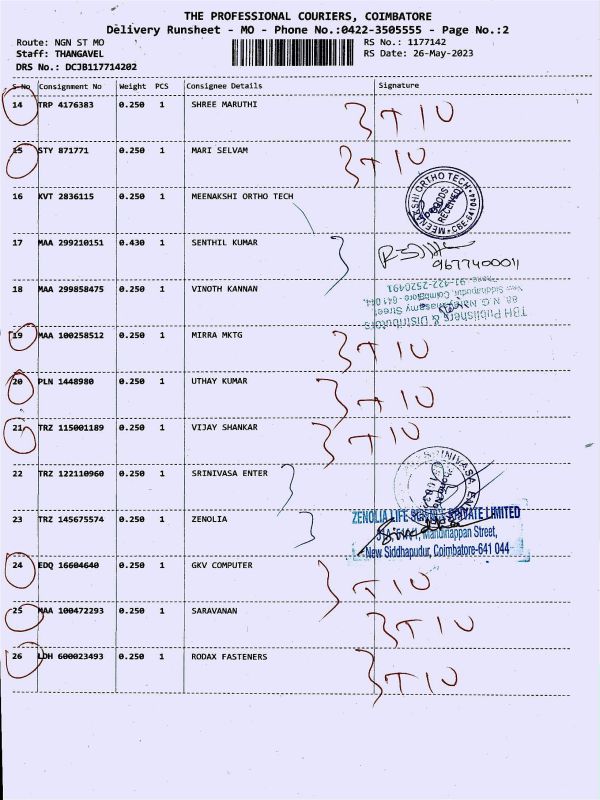 THE PROFESSIONAL COURIERS, COIMBATORE
Delivery Runsheet - MO - Phone No.:0422-3505555 - Page No.:2
Route: NGN ST MO RS No.: 1177142
Staff: THANGAVEL RS Date: 26-May-2023
DRS No.: DCJB117714202
S No Consignment No Weight PCS Consignee Details Signature
14 TRP 4176383 0.250 1 SHREE MARUTHI
15 STY 871771 0.250 1 MARI SELVAM
16 KVT 2836115 0.250 1 MEENAKSHI ORTHO TECH
MEENAKSHI ORTHO TECH
GOODS RECEIVED
17 MAA 299210151 0.430 1 SENTHIL KUMAR
9677400011
18 MAA 299858475 0.250 1 VINOTH KANNAN
TBH Publishers & Distributors
88 N. G. Narayanasamy Street
New Siddhapudur, Coimbatore - 641 044.
Phone: 91-422-2520491
19 MAA 100258512 0.250 1 MIRRA MKTG
20 PLN 1448980 0.250 1 UTHAY KUMAR
21 TRZ 115001189 0.250 1 VIJAY SHANKAR
22 TRZ 122110960 0.250 1 SRINIVASA ENTER
23 TRZ 145675574 0.250 1 ZENOLIA
ZENOLIA LIFE PRIVATE LIMITED
Street,
New Siddhapudur, Coimbatore-641 044
24 EDQ 16604640 0.250 1 GKV COMPUTER
25 MAA 100472293 0.250 1 SARAVANAN
26 LDH 600023493 0.250 1 RODAX FASTENERS